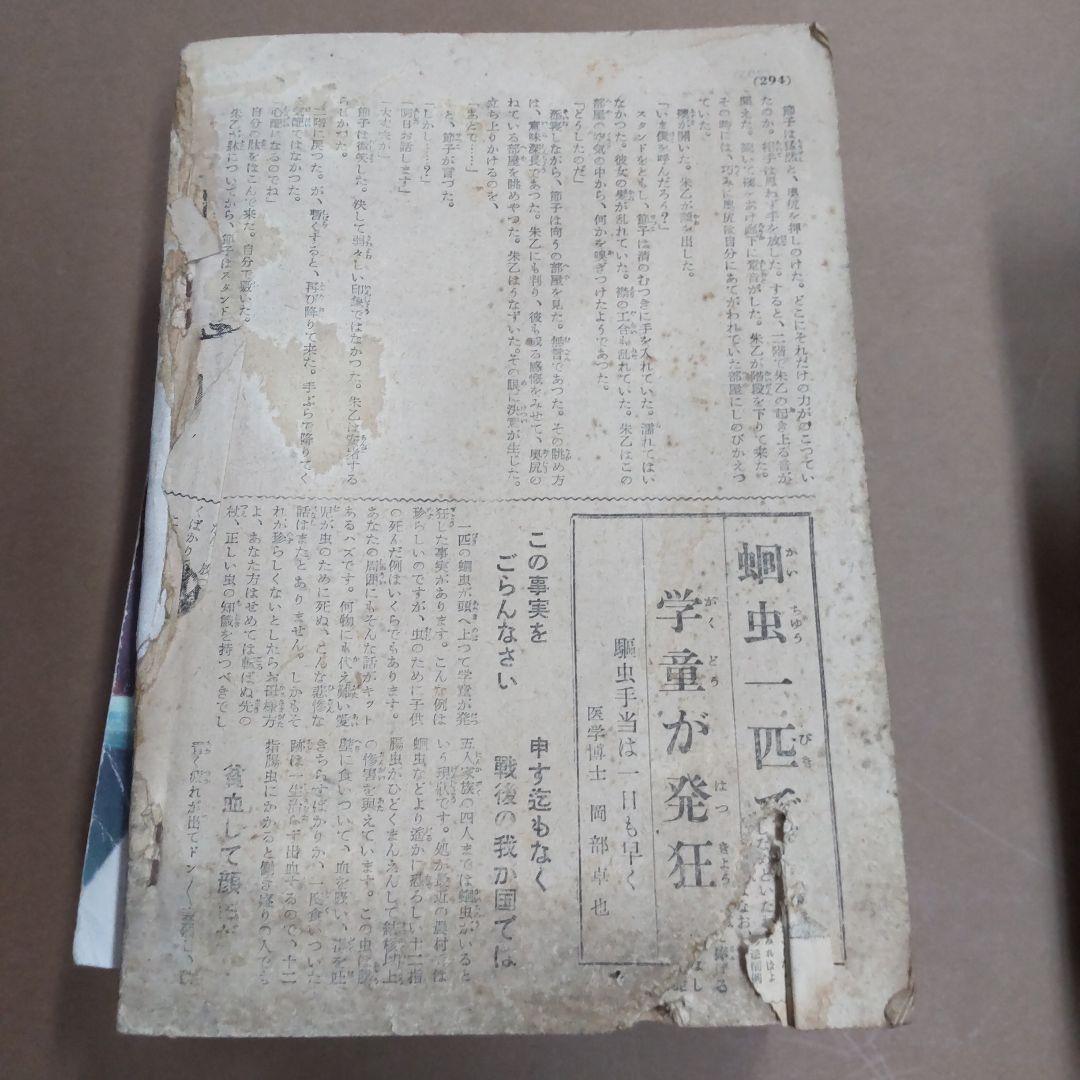 (294)
節子は猛然と、奥尻を押しのけた。どこにそれだけの力がのこつてい
たのか。相手は思わず手を放した。すると、二階で朱乙の起き上る音が
聞えた。続いて襖をあけ廊下に跫音がした。朱乙が階段を下りて来た。
その時には、巧みに奥尻は自分にあてがわれていた部屋にしのびかえつ
ていた。
襖が開いた。朱乙が顔を出した。
「いま僕を呼んだろう?」
スタンドをともし、節子は清のむつきに手を入れていた。濡れてはい
なかつた。彼女の髪が乱れていた。襟の工合も乱れていた。朱乙はこの
部屋の空気の中から、何かを嗅ぎつけたようであつた。
「どうしたのだ」
しながら、節子は向うの部屋を見た。無言であつた。その眺め方
は、意味深長であつた。朱乙にも判り、彼も或る感慨をみせて、奥尻の
ねている部屋を眺めやつた。朱乙はうなずいた。その眼に決意が生じた。
立ち上りかけるのを、
「あとで……」
と、節子が言つた。
「しかし……?」
「明日お話します」
「大丈夫か」
節子は微笑した。決して弱々しい印象ではなかつた。朱乙は安堵する
らしかつた。
二階に戻つた。が、暫くすると、再び降りて来た。手ぶらで降りてく
気配ではなかつた。
「心配になるのでね」
自分の床をはこんで来た。自分で敷いた。
朱乙が床についてから、節子はスタンド
蛔虫一匹で
学童が発狂
駆虫手当は一日も早く
医学博士 岡部卓也
この事実を
ごらんなさい
一匹の蛔虫が頭へ上つて学童が発
狂した事実があります。こんな例は
珍らしいのですが、虫のために子供
の死んだ例はいくらでもあります。
あなたの周囲にもそんな話がキット
あるハズです。何物にも代え難い愛
児が虫のために死ぬ、こんな悲惨な
話はまたとありません。しかもそ
れが珍らしくないとしたらお母様方
よ、あなた方はせめては転ばぬ先の
杖、正しい虫の知識を持つべきでし
申す迄もなく
戦後の我が国では
五人家族の四人までは蛔虫がいると
いう現状です。処が最近の農村では
蛔虫などより遥かに恐ろしい十二指
腸虫がひどくまんえんして結核以上
の惨害を与えています。この虫は腸
壁に食いついて、血を吸い、毒を吐
きちらすばかりか、一度食いついた
跡は一生治らず出血するので、十二
指腸虫にかかると働き盛りの人でも
貧血して顔